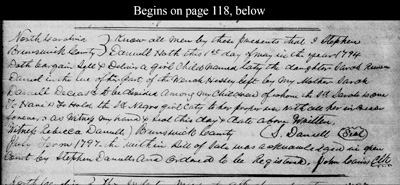 Begins on page 118, below
North Carolina } Know all Men by these presents that I Stephen
Brunswick County } Daniell Hath this 1st day of may in the year 1794
Doth Bargain Sell & Deliver a girl Child named Caty the daughter Sarah
Daniell in the of the part of the left by my Mother Sarah
Daniell Deceasd to be devided Among my Children of whom the Sd Sarah is one
To Have & To Hold the Sd Negro girl Caty to her proper use with all her increase
forever as Witness my hand & Seal this day & date above Written
Witness Rebecca Daniell } Brunswick County S. Daniell (Seal)
July Term 1797. the within Bill of Sale was acknowledged in open
Court by Stephen Daniell And Ordered to be Registerd. John Cains Clk
North Carolina } Know